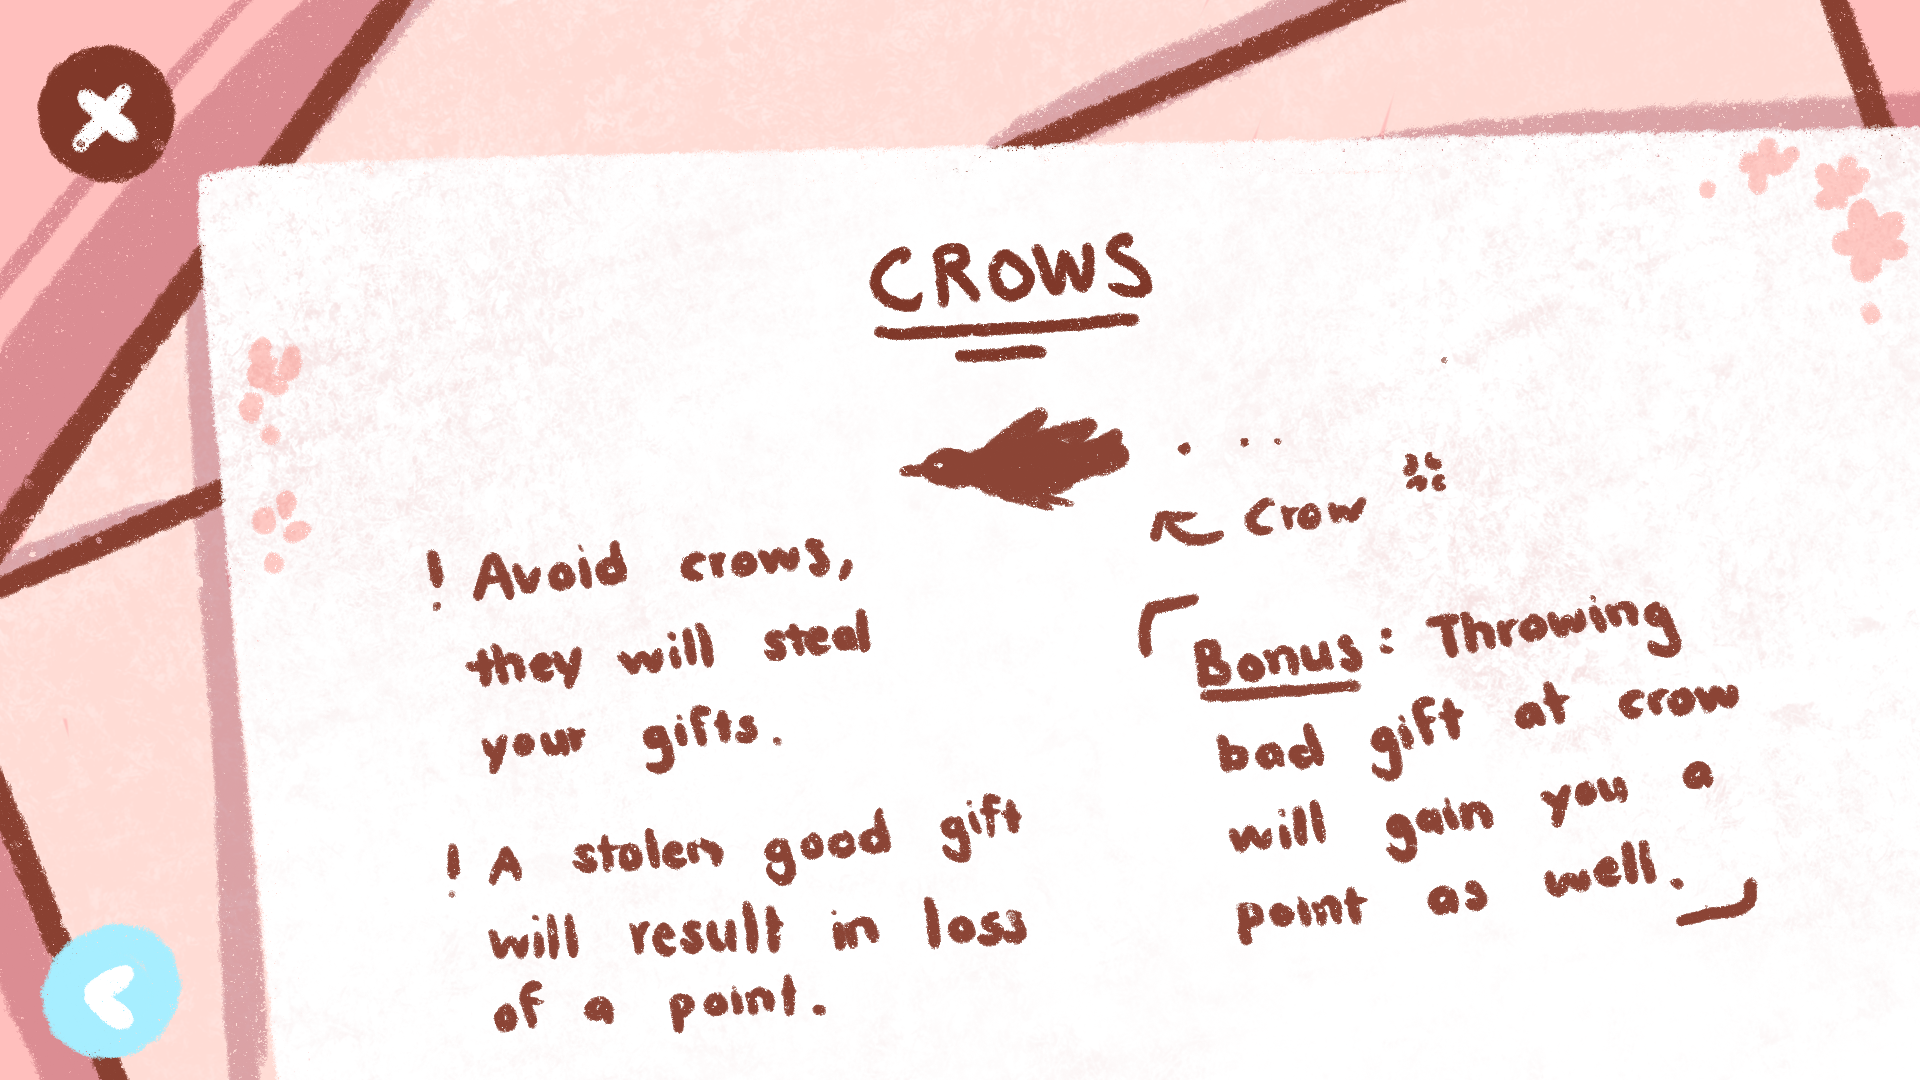 CROWS
Crow
! Avoid crows,
they will steal
your gifts.
! A stolen good gift
will result in loss
of a point.
Bonus: Throwing
bad gift at crow
will gain you a
point as well.